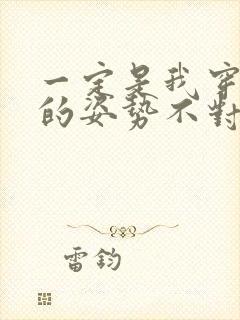 一定是我穿
的姿势不對
雷鈞